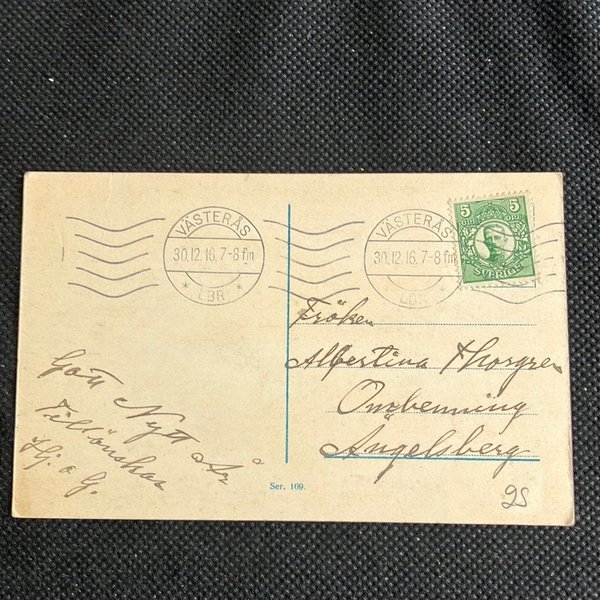 VÄSTERÅS
30.12.16.7-8 fm
* LBR *
VÄSTERÅS
30.12.16.7-8 fm
* LBR *
5 5
ÖRE ÖRE
SVERIGE
Fröken
Albertina Thorgren
Ombenning
Ängelsberg
Gott Nytt År
Tillönskas
Hj. o G.
Ser. 169.
95